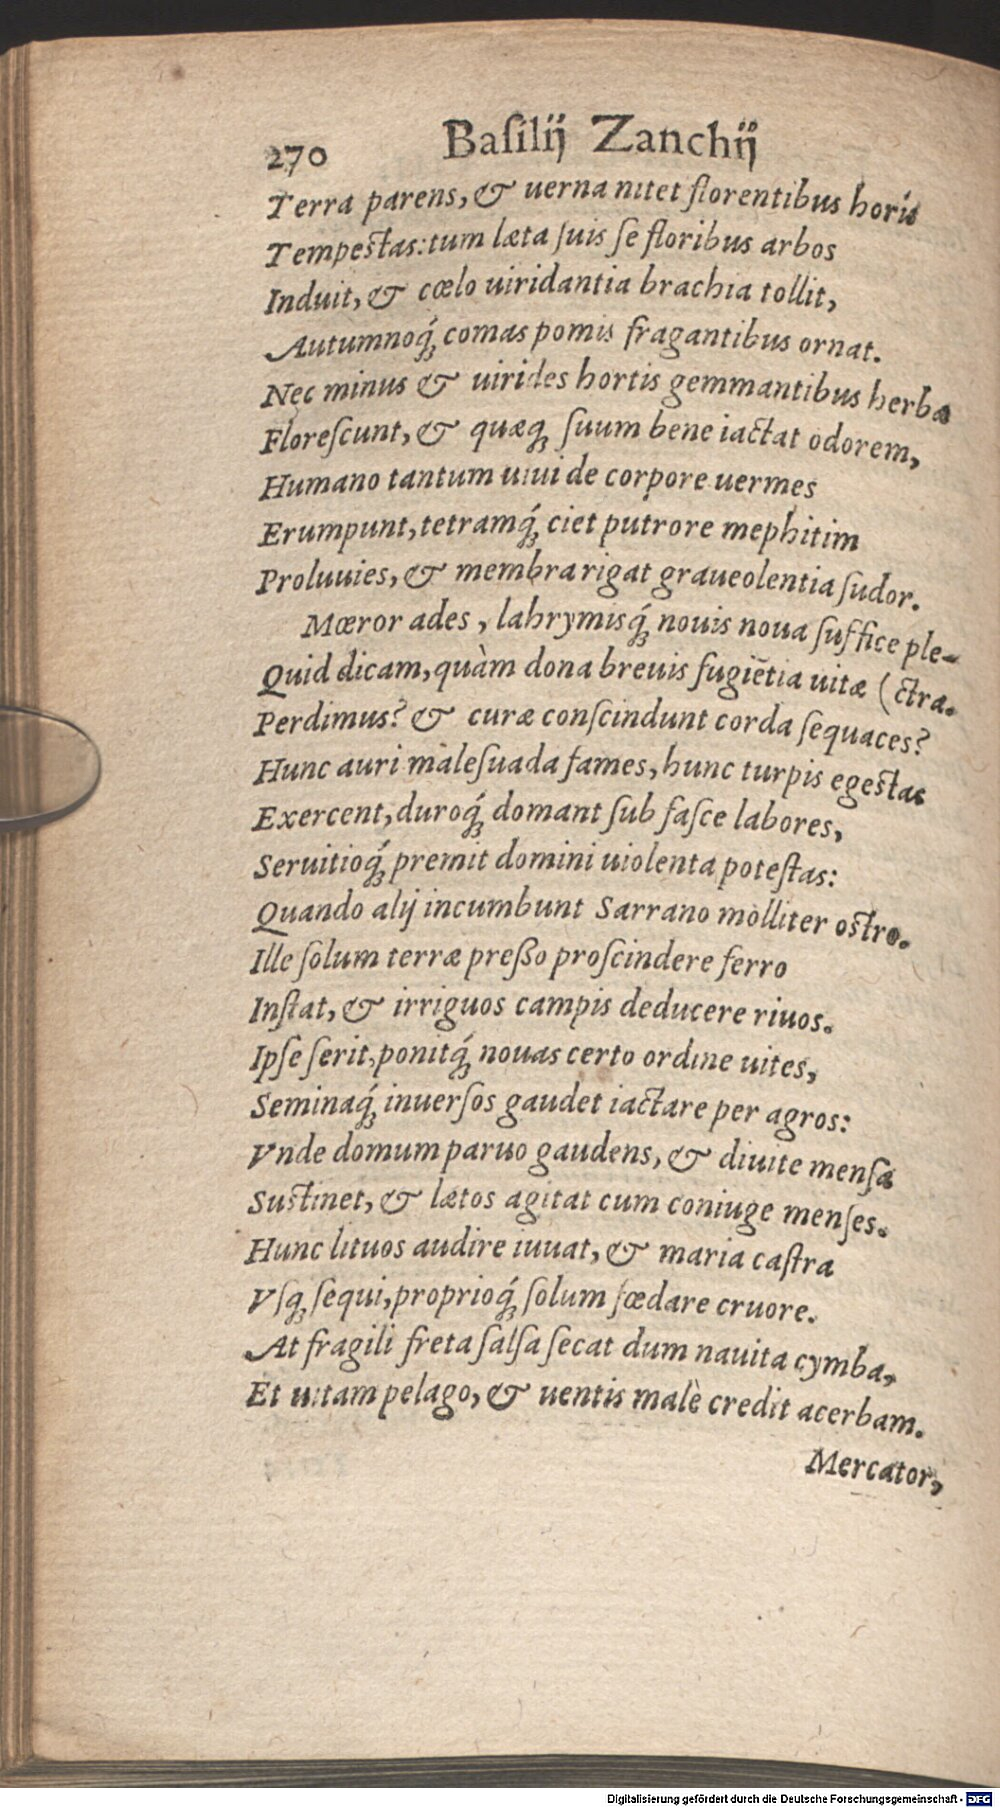 270 Basilij Zanchij
Terra parens, & uerna nitet florentibus horis
Tempestas: tum læta suis se floribus arbos
Induit, & cœlo uiridantia brachia tollit,
Autumnoq́; comas pomis fragantibus ornat.
Nec minus & uirides hortis gemmantibus herbæ
Florescunt, & quæq; suum bene iactat odorem,
Humano tantum uiui de corpore uermes
Erumpunt, tetramq́; ciet putrore mephitim
Proluuies, & membra rigat graueolentia sudor.
Mœror ades, lahrymisq́; nouis noua suffice ple-
Quid dicam, quàm dona breuis fugiētia uitæ (ctra.
Perdimus? & curæ conscindunt corda sequaces?
Hunc auri malesuada fames, hunc turpis egestas
Exercent, duroq́; domant sub fasce labores,
Seruitioq́; premit domini uiolenta potestas:
Quando alij incumbunt Sarrano molliter ostro.
Ille solum terræ presso proscindere ferro
Instat, & irriguos campis deducere riuos.
Ipse serit, ponitq́; nouas certo ordine uites,
Seminaq́; inuersos gaudet iactare per agros:
Vnde domum paruo gaudens, & diuite mensa
Sustinet, & lætos agitat cum coniuge menses.
Hunc lituos audire iuuat, & maria castra
Vsq; sequi, proprioq́; solum fœdare cruore.
At fragili freta salsa secat dum nauita cymba,
Et uitam pelago, & uentis malè credit acerbam.
Mercator,
Digitalisierung gefördert durch die Deutsche Forschungsgemeinschaft - DFG